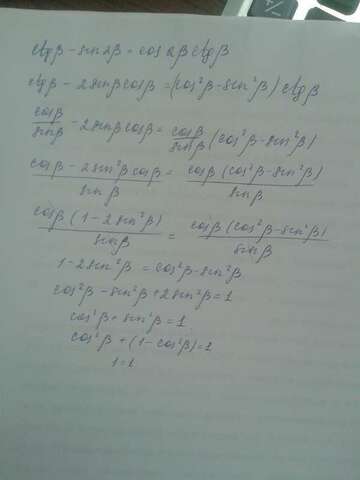 ctgβ - sin2β = cos2β ctgβ
ctgβ - 2sinβcosβ = (cos²β - sin²β) ctgβ
cosβ/sinβ - 2sinβcosβ = cosβ/sinβ (cos²β - sin²β)
(cosβ - 2sin²βcosβ)/sinβ = cosβ(cos²β - sin²β)/sinβ
cosβ(1 - 2sin²β)/sinβ = cosβ(cos²β - sin²β)/sinβ
1 - 2sin²β = cos²β - sin²β
cos²β - sin²β + 2sin²β = 1
cos²β + sin²β = 1
cos²β + (1 - cos²β) = 1
1 = 1